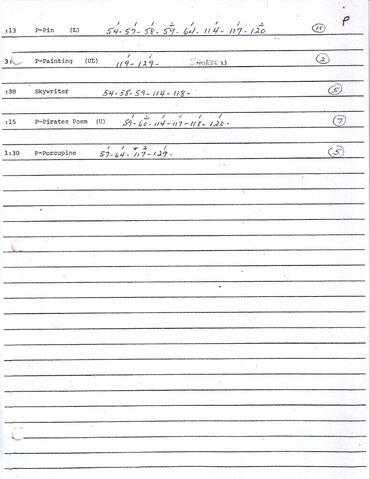 P
:13 P-Pin (L) 54-57-58-59-64-114-117-120
P-Painting (UL) 119-129- 2
:38 Skywriter 54-58-59-114-118- 5
:15 P-Pirates Poem (U) 59-60-114-117-118-120- 7
1:30 P-Porcupine 57-64-117-129- 5